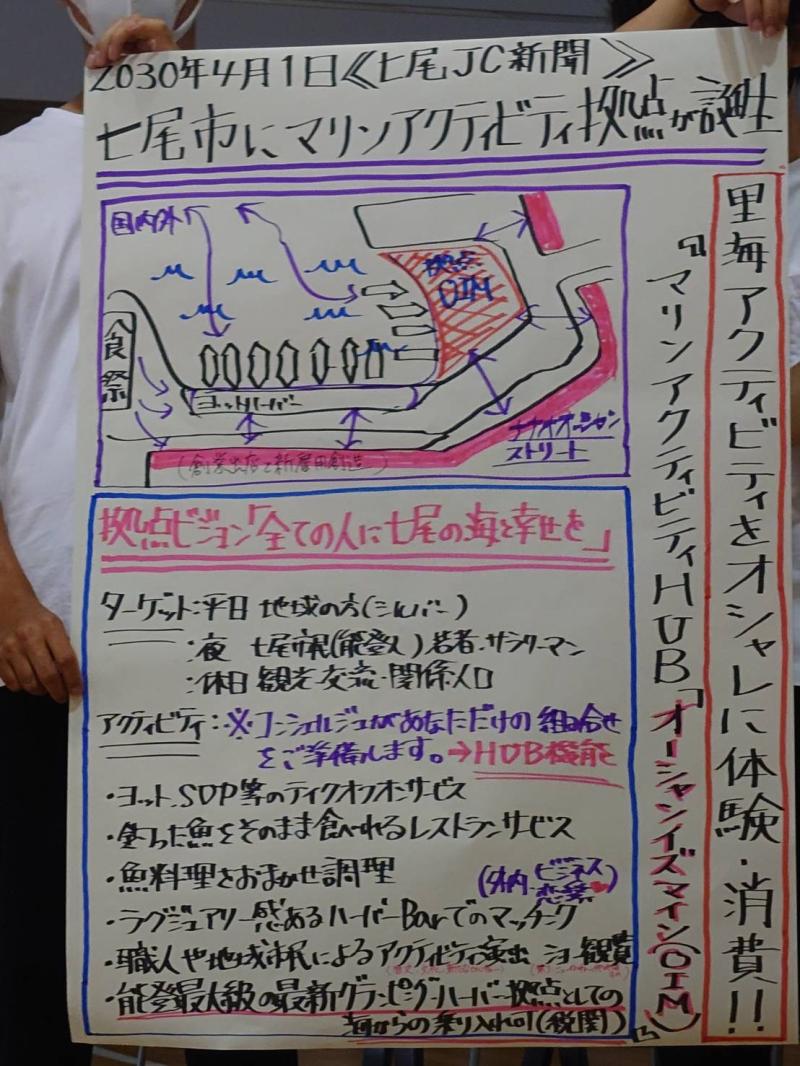 2030年4月1日《七尾JC新聞》
七尾市にマリンアクティビティ拠点が誕生
里海アクティビティをオシャレに体験・消費!!
『マリンアクティビティHUB「オーシャンイズマイン(OIM)」』
国内外
拠点
OIM
食祭
ヨットハーバー
ナナオオーシャン
ストリート
拠点ビジョン「全ての人に七尾の海と幸せを」
ターゲット:平日 地域の方(シルバー)
:夜 七尾市民(能登人)若者・サラリーマン
:休日 観光・交流・関係人口
アクティビティ:※コンシェルジュがあなただけの組み合せ
をご準備します。→HUB機能
・ヨット、SUP等のテイクオフオンサービス
・釣った魚をそのまま食べれるレストランサービス
・魚料理をおまかせ調理
・ラグジュアリー感あるハーバーBarでのマッチング
(外内・ビジネス
恋愛)
・職人や地域市民によるアクティビティ演出 ショー観覧
・能登最大級の最新グランピングハーバー拠点としての
海からの乗り入れ可(税関)